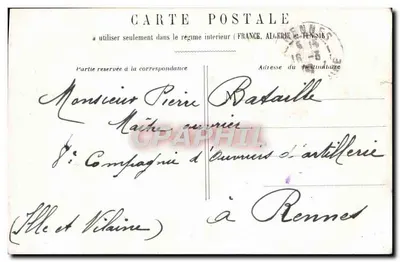 CARTE POSTALE
à utiliser seulement dans le régime intérieur (FRANCE, ALGÉRIE et TUNISIE)
Partie réservée à la correspondance
Adresse du destinataire
RENNES
Monsieur Pierre Bataille
Maître ouvrier
8e Compagnie d'ouvriers d'artillerie
à Rennes
(Ille et Vilaine)